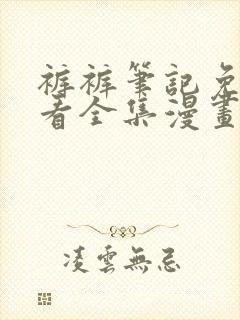 裤裤筆記免
看全集漫畫
凌雲無忌